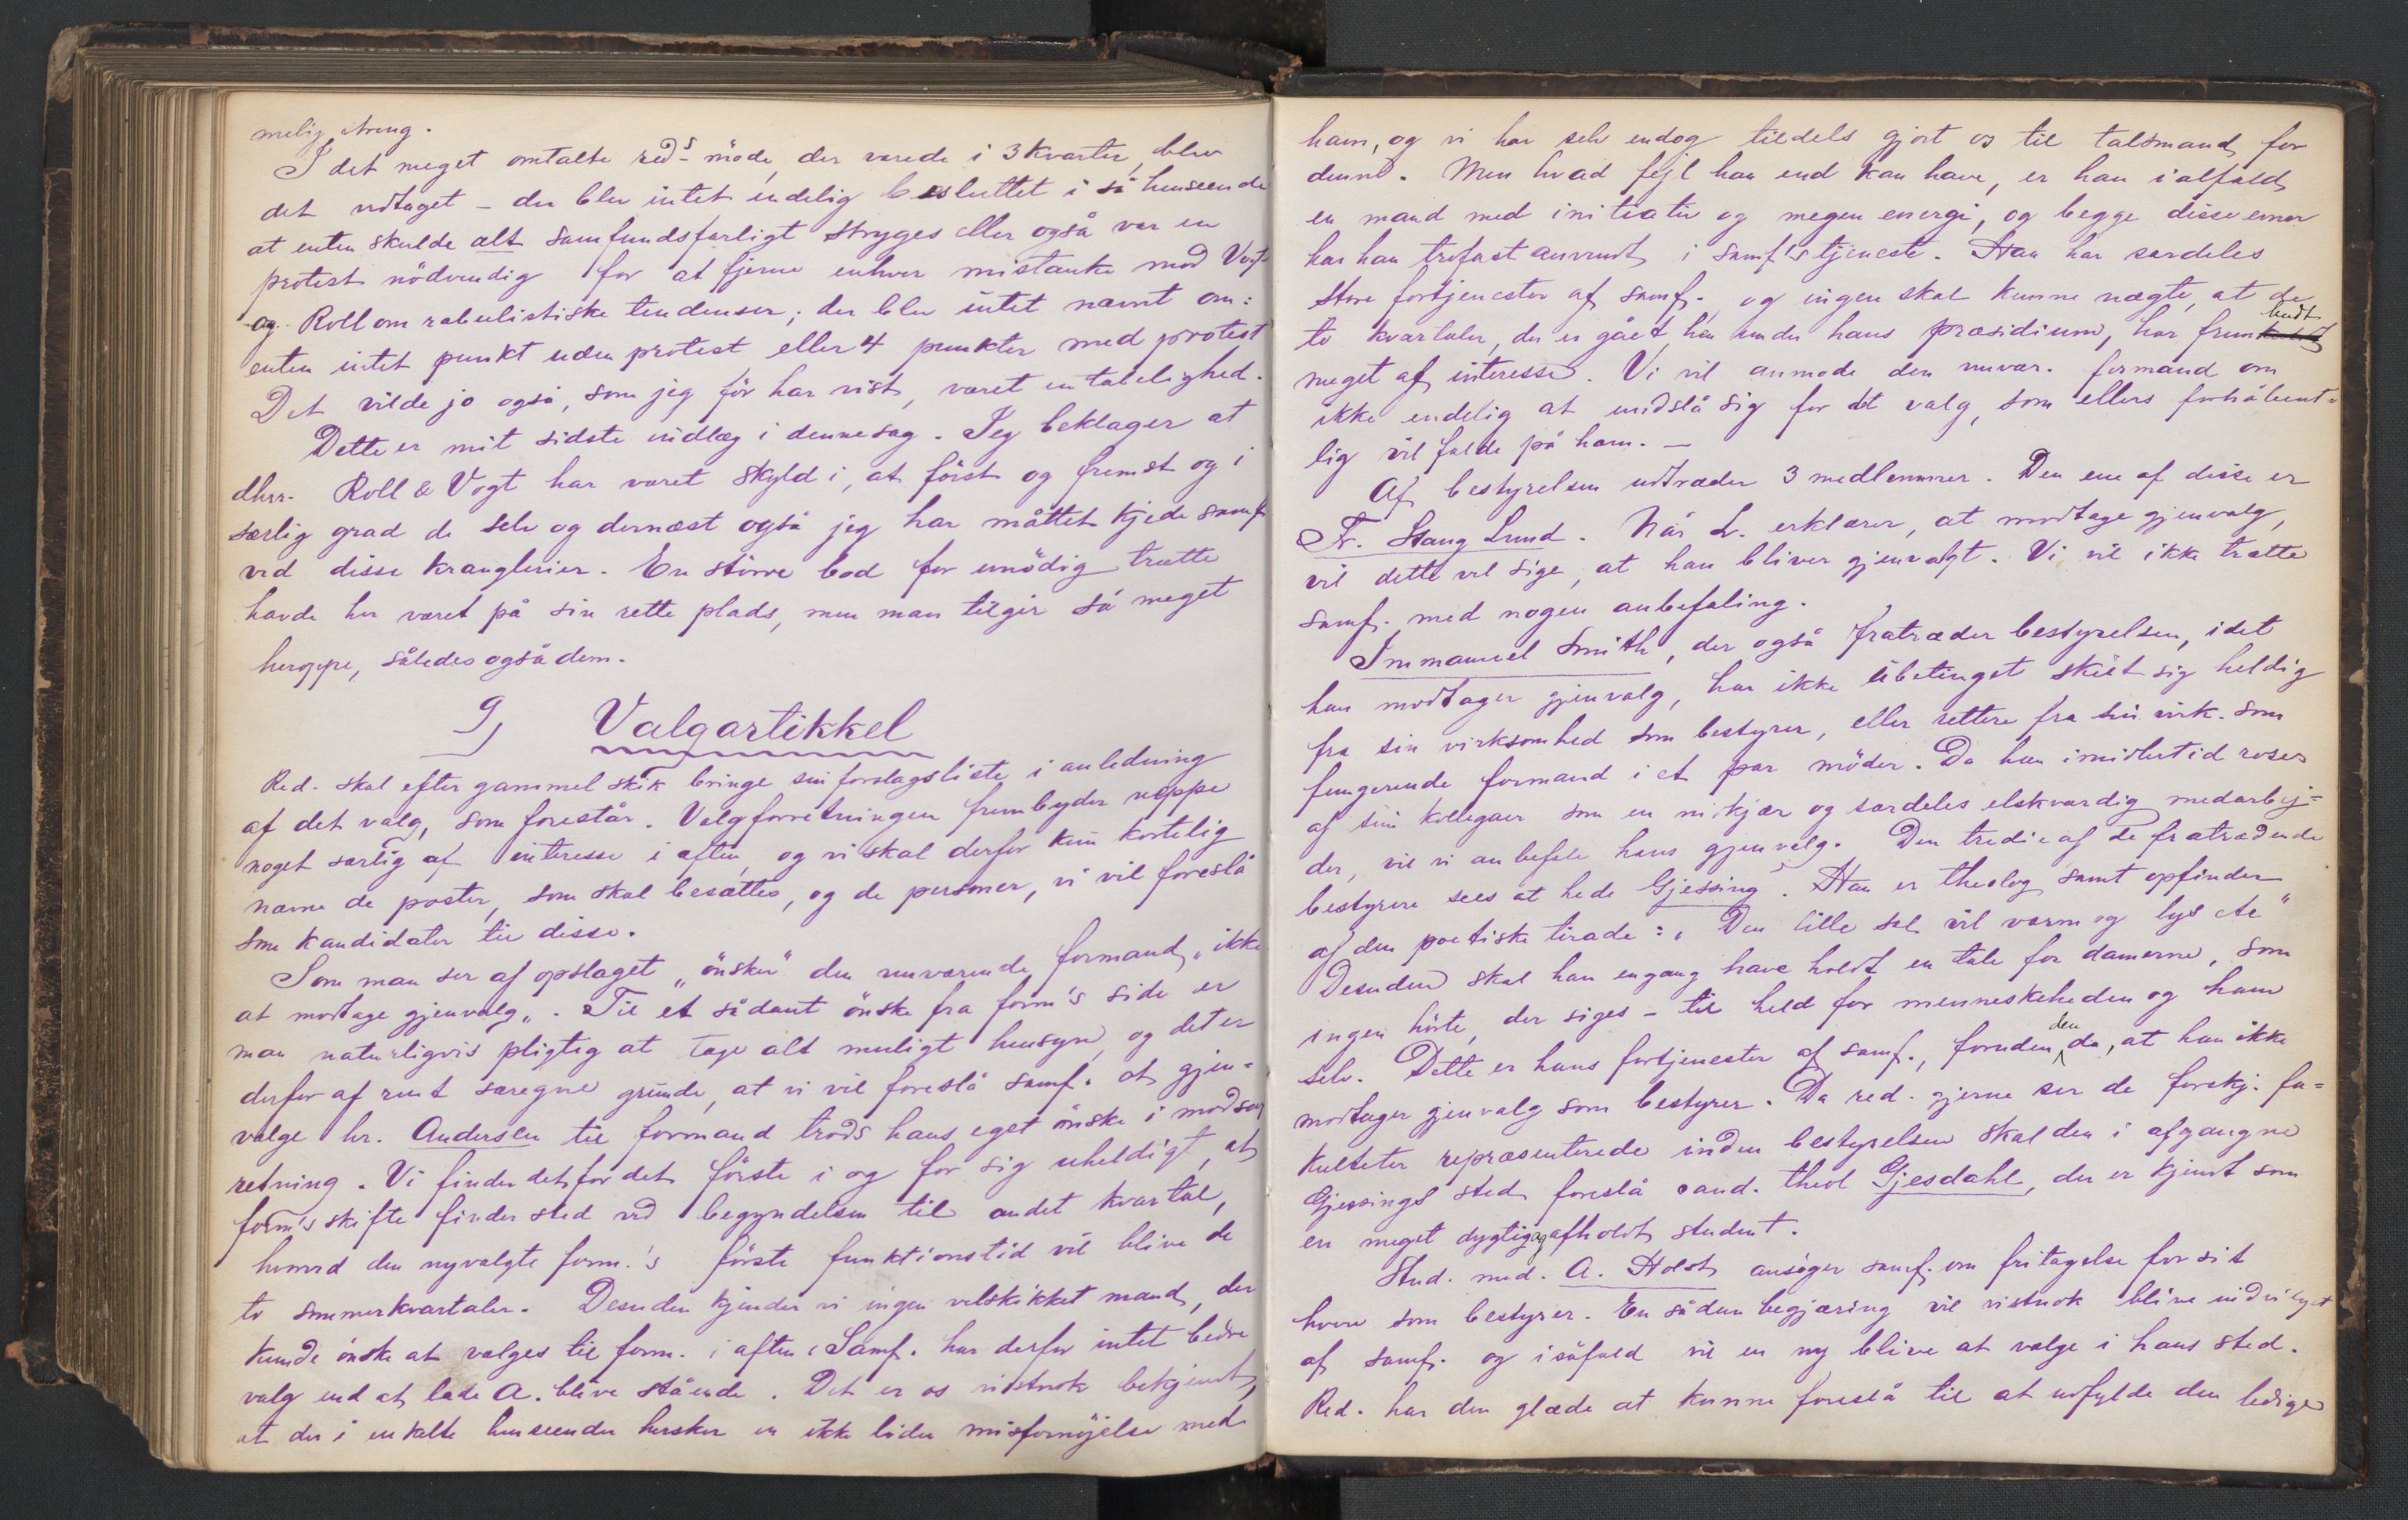 melig streng.
I det meget omtalte red-s möde, der varede i 3 kvarter, blev
det vedtaget – der blev intet endelig besluttet i så henseende
at enten skulde alt samfundsfarligt stryges eller også var en
protest nödvendig for at fjerne enhver mistanke mod Vogt
og Roll om rabulistiske tendenser; der blev intet nævnt om:
enten intet punkt uden protest eller 4 punkter med protest
Det vilde jo også, som jeg för har vist, været en tabelighed.
Dette er mit sidste indlæg i denne sag. Jeg beklager at
dhrr. Roll & Vogt har været skyld i, at först og fremst og i
særlig grad de selv og dernæst også jeg har måttet kjede samf.
ved disse kranglerier. En större bod for unödig trætte
havde her været på sin rette plads, men man tilgir så meget
heroppe, således også dem.
9) Valgartikkel
Red. skal efter gammel skik bringe sin forslagsliste i anledning
af det valg, som forestår. Valgforretningen frembyder neppe
noget særlig af interesse i aften, og vi skal derfor kun kortelig
nævne de poster, som skal besættes, og de personer, vi vil foreslå
som kandidater til disse.
Som man ser af opslaget „önsker" den nuværende formand „ikke
at modtage gjenvalg„. Til et sådant önske fra form's side er
man naturligvis pligtig at tage alt muligt hensyn, og det er
derfor af rent særegne grunde, at vi vil foreslå samf. at gjen=
vælge hr. Andersen til formand trods hans eget önske i modsat
retning. Vi finder det for det förste i og for sig uheldigt, at
form's skifte finder sted ved begyndelsen til andet kvartal,
hvorved den nyvalgte form.'s förste funktionstid vil blive de
to sommerkvartaler. Desuden kjender vi ingen velskikket mand, der
kunde önske at vælges til form. i aften. Samf. har derfor intet bedre
valg end at lade A. blive stående. Det er os vistnok bekjendt,
at der i enkelte henseender hersker en ikke liden misfornöjelse med
ham, og vi har selv endog tildels gjort os til talsmand for
denne. Men hvad fejl han end kan have, er han ialfald
en mand med initiativ og megen energi, og begge disse evner
har han trofast anvendt i samf's tjeneste. Han har særdeles
store fortjenester af samf. og ingen skal kunne nægte, at de
to kvartaler, der er gået hen under hans præsidium, har frembudt
meget af interesse. Vi vil anmode den nuvær. formand om
ikke endelig at undslå sig for det valg, som ellers forhåbent=
lig vil falde på ham. –
Af bestyrelsen udtræder 3 medlemmer. Den ene af disse er
Fr. Stang Lund. Når L. erklærer, at modtage gjenvalg,
vil dette vel sige, at han bliver gjenvalgt. Vi vil ikke trætte
samf. med nogen anbefaling.
Immanuel Smith, der også fratræder bestyrelsen, idet
han modtager gjenvalg, har ikke ubetinget skilt sig heldig
fra sin virksomhed som bestyrer, eller rettere fra sin virk. som
fungerende formand i et par möder. Da han imidlertid roses
af sine kollegaer som en nidkjær og særdeles elskværdig medarbej=
der, vil vi anbefale hans gjenvalg. Den tredie af de fratrædende
bestyrere sees at hede Gjessing. Han er theolog samt opfinder
af den poetiske tirade: „Den lille sol vil varm og lys etc"
Desuden skal han engang have holdt en tale for damerne, som
ingen hörte, der siges – til held for menneskeheden og ham
selv. Dette er hans fortjenester af samf., foruden den da, at han ikke
modtager gjenvalg som bestyrer. Da red. gjerne ser de forskj. fa=
kulteter repræsenterede inden bestyrelsen skal den i afgangne
Gjessings sted foreslå cand. theol Gjesdahl, der er kjendt som
en meget dygtig og afholdt student.
Stud. med. A. Holst ansöger samf. om fritagelse for sit
hverv som bestyrer. En sådan begjæring vil vistnok blive indvilget
af samf. og isåfald vil en ny blive at vælge i hans sted.
Red. har den glæde at kunne foreslå til at udfylde den ledige